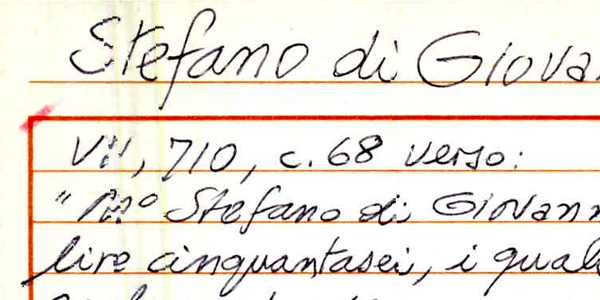 Stefano di Giova
VII, 710, c. 68 verso:
" Mº Stefano di Giovann
lire cinquantasei, i quali